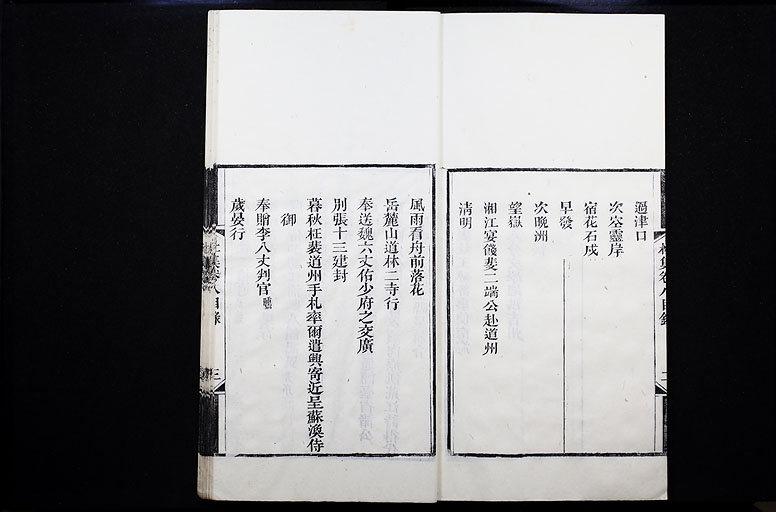 過津口
次空靈岸
宿花石戍
早發
次晩洲
望嶽
湘江宴餞裴二端公赴道州
清明
風雨看舟前落花
岳麓山道林二寺行
奉送魏六丈佑少府之交廣
別張十三建封
暮秋枉裴道州手札率爾遣興寄近呈蘇渙侍
御
奉贈李八丈判官
歲晏行
杜集卷八目錄
三